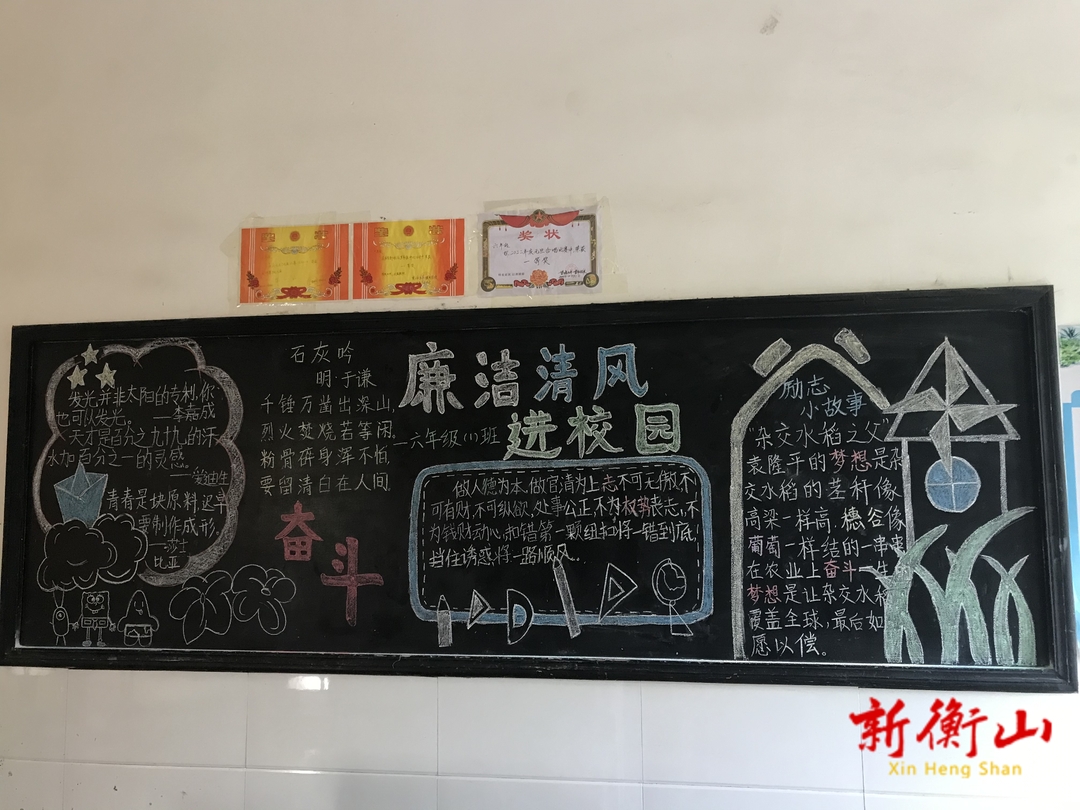 奖状
一等奖
发光并非太阳的专利,你
也可以发光。
——李嘉成
天才是百分之九十九的汗
水加百分之一的灵感。
——爱迪生
青春是块原料,迟早
要制作成形。
——莎士
比亚
石灰吟
明·于谦
千锤万凿出深山,
烈火焚烧若等闲,
粉骨碎身浑不怕,
要留清白在人间。
奋斗
廉洁清风
进校园
—六年级(1)班
做人德为本,做官清为上,志不可无,傲不
可有,财不可纵欲,处事公正,不为权势丧志,不
为钱财动心,扣错第一颗纽扣将一错到底,
挡住诱惑,将一路顺风。
励志
小故事
“杂交水稻之父”
袁隆平的梦想是杂
交水稻的茎秆像
高梁一样高,穗谷像
葡萄一样结的一串串
在农业上奋斗一生
梦想是让杂交水稻
覆盖全球,最后如
愿以偿。
新衡山
Xin Heng Shan